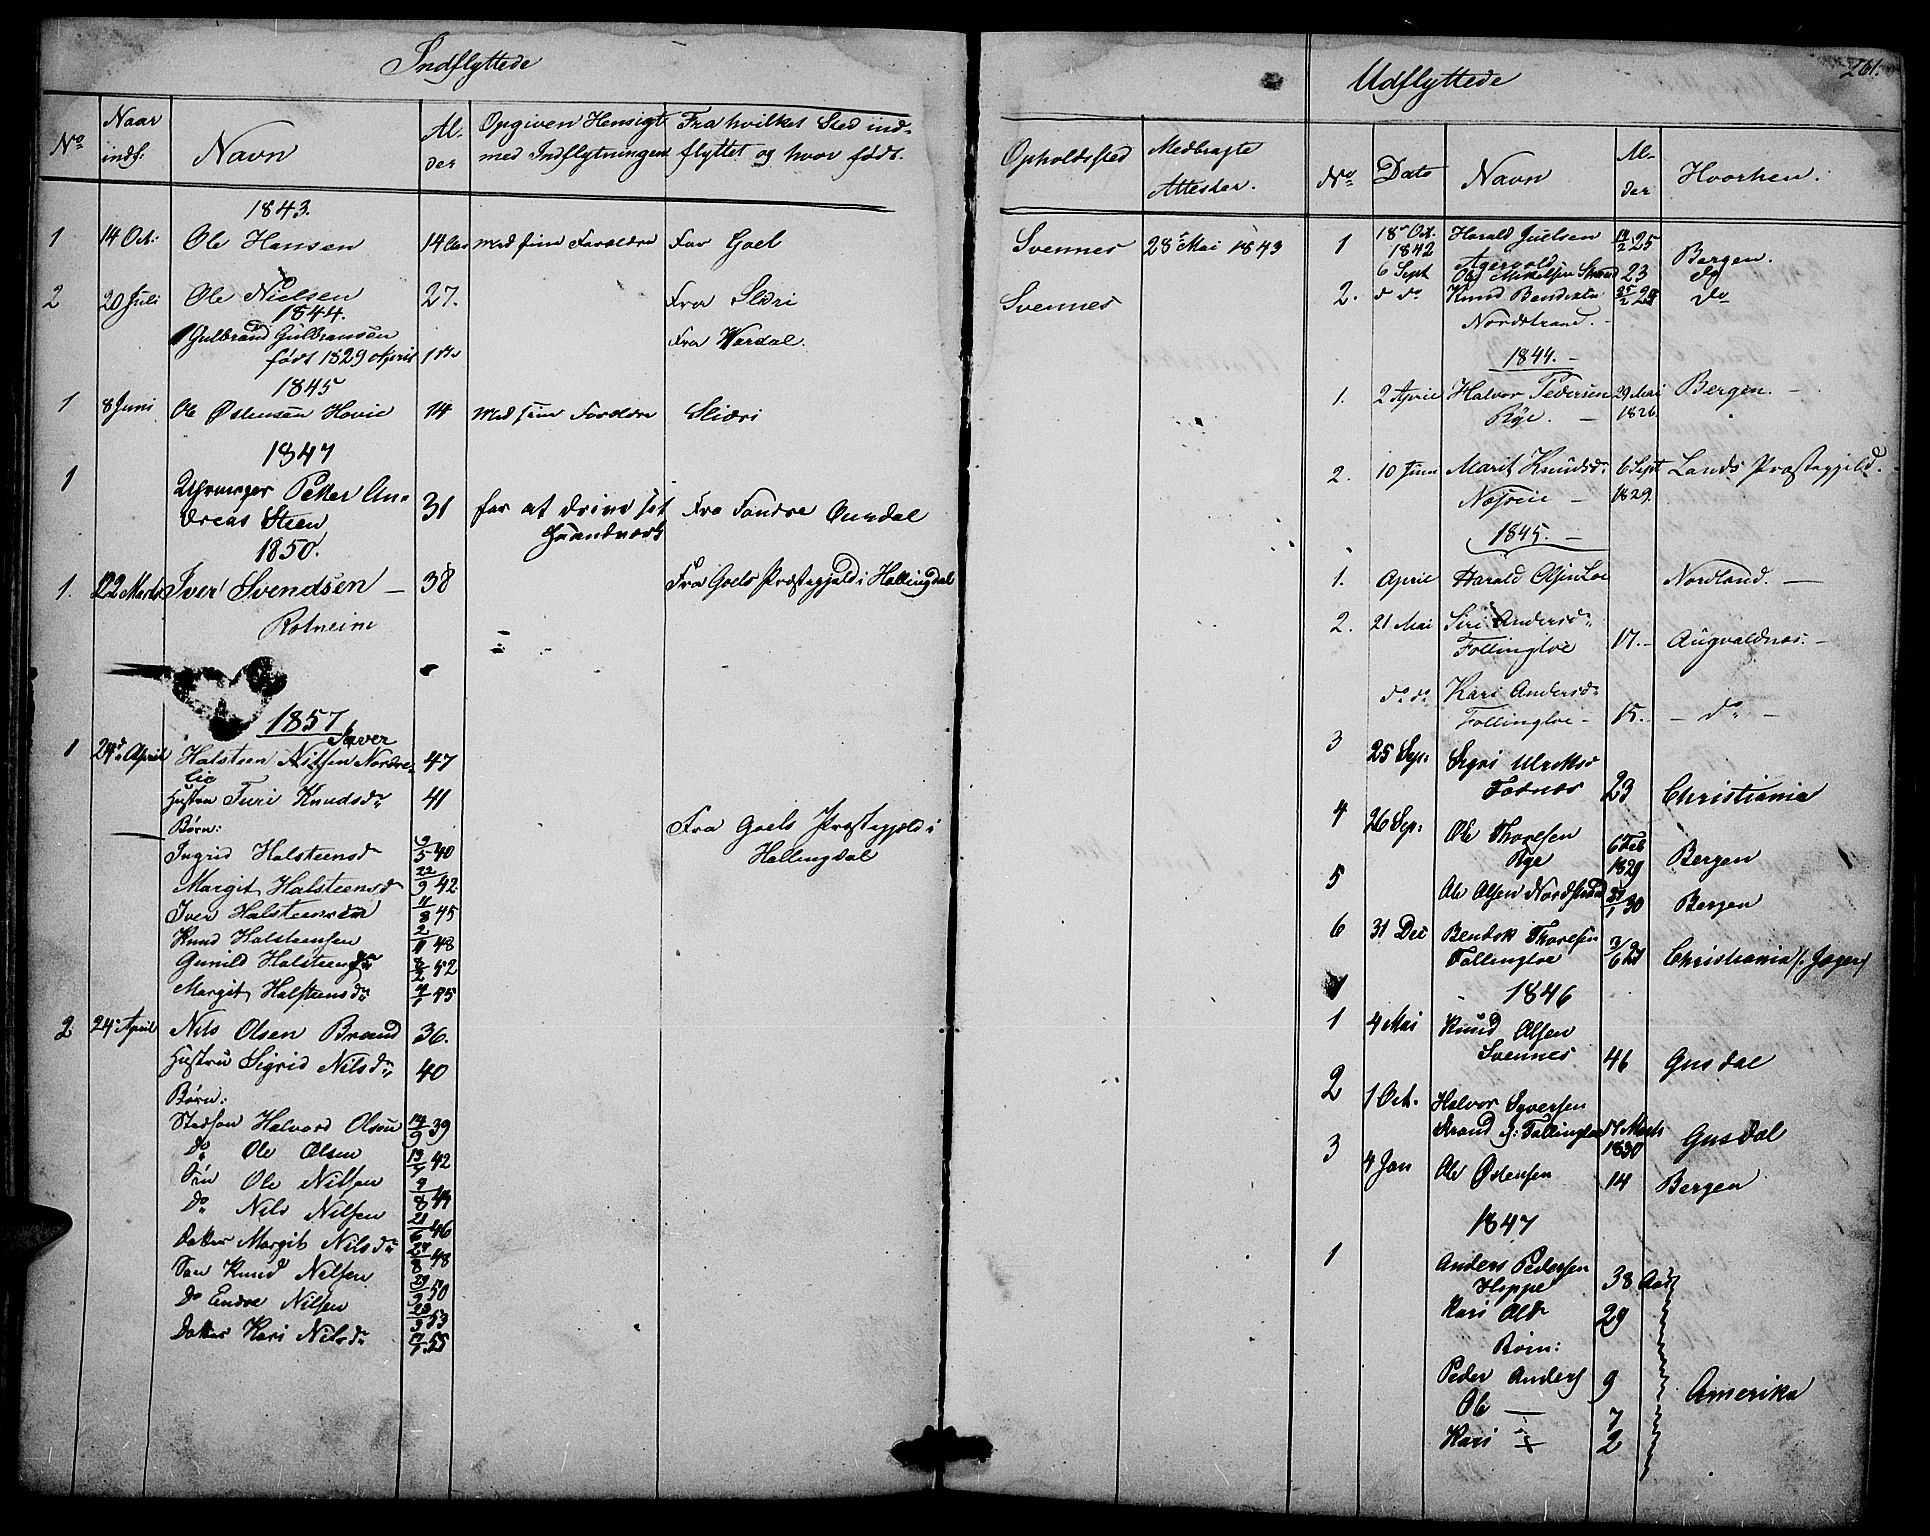 Indflyttede
No
Naar indf:
Navn
Alder
Opgiven Hensigt med Indflytningen
Fra hvilket Sted indflyttet og hvor født.
1843.
1 14 Oct: Ole Hansen 14 Aar med sine Forældre Fra Goel
2 20 Juli Ole Nielsen 27. Fra Slidri
1844.
1 Gulbrand Gulbransen Fra Wardal.
født 1829 April
1845
1 8 Juni Ole Østensen Hovie 14 med sine Forældre Slidri
1847
1 Uhrmager Petter An-
dreas Steen 31 for at drive sit Fra Søndre Ourdal
Haandværk
1850.
1. 22 Marts Iver Svendsen — 38 Fra Goels Præstegjeld i Hallingdal
Rotneim
1857
1 24de April Halsteen Nilsen Nordre- 47
lie
Hustru Turi Knudsdr 41
Børn:
Ingrid Halsteensd 9/5 40 Fra Goels Præstegjeld i
Hallingdal
Margit Halsteensd 22/9 42
Iver Halsteensen 11/8 45
Knud Halsteensen 2/11 48
Gunild Halsteensdr 52
Margit Halsteensdr
2 24 April Nils Olsen Braad 36.
Hustru Sigrid Nilsdr 40
Børn:
Stedsøn Halvord Olsen 39
Do Ole Olsen 42
Søn Ole Nilsen 44
Do Nils Nilsen 21/6 46
Datter Margit Nilsdr 48
Søn Knud Nilsen 50
Do Endre Nilsen 53
Datter Kari Nilsdr 55
Opholdssted
Medbragte Attester.
Svennes 28 Mai 1843
Svennes
Udflyttede 261.
No
Dato
Navn
Alder
Hvorhen.
1 18 Oct. 1842 Harald Juelsen 25 Bergen.
Agervold
6 Sept Ole Mikkelsen Strand 23 do
2. d do Knud Bendixen do
Nordstrand.
1844.
1. 2 April Halvor Pedersen 29 Mai Bergen.
Rye. 1826
2. 10 Juni Marit Knudsdr 6 Sept Lands Præstegjeld.
1829.
1845.
1. April Harald Nordland.
2. 21 Mai Siri Andersdr
Follingloe 17. Augvaldnæs.
do do Kari Andersdr
Follingloe 15. do
3 25 Sep: Sigri Ulriksd
Fodnæs 23 Christiania
4 26 Sep: Ole Thoresen 6 Feb
Rye 1829 Bergen
5 Ole Olsen Nordstrand 30 Bergen
6 31 Dec Bendik Thoresen
Follingloe Christiania
1846
1 4 Mai Knud Olsen
Svennes 46 Gusdal
2 1 Oct. Halvor Syversen
Strand Follingloe 17 Marts
1830 Gusdal
3 4 Jan Ole Østensen 14 Bergen
1847
1 Anders Pedersen
Hippe 38 Aar
Kari Olsdr 29
Børn:
Peder Anders 9 Amerika
Ole — 7
Kari — 2